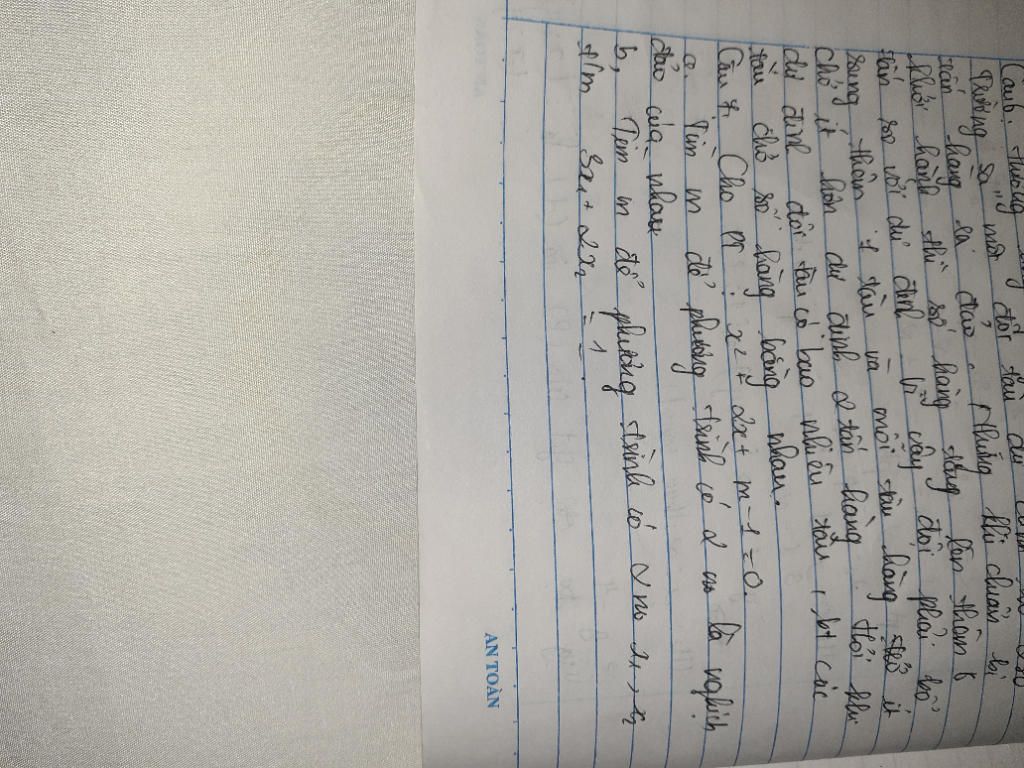 Câu 6. Hưởng đội tàu
Trường Sa" một đội tàu dự định chở
tấn hàng ra đảo. Nhưng khi chuẩn bị
khởi hành thì số hàng tăng lên thêm 6
tấn so với dự định. Vì vậy đội phải bổ
sung thêm 1 tàu và mỗi tàu hàng
chở ít hơn dự định 2 tấn hàng. Hỏi khi
dự định đội tàu có bao nhiêu tàu, bt các
tàu chở số hàng bằng nhau.
Câu 7. Cho pt x² + 2x + m - 1 = 0.
a. Tìm m để phương trình có 2 no là nghịch
đảo của nhau
b, Tìm m để phương trình có 2 no x₁, x₂
t/m 3x₁ + 2x₂ = 1
AN TOÀN